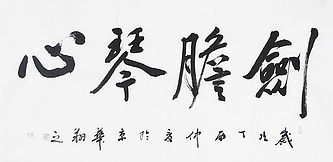 劍膽琴心
歲次丁酉仲春於京華翔之